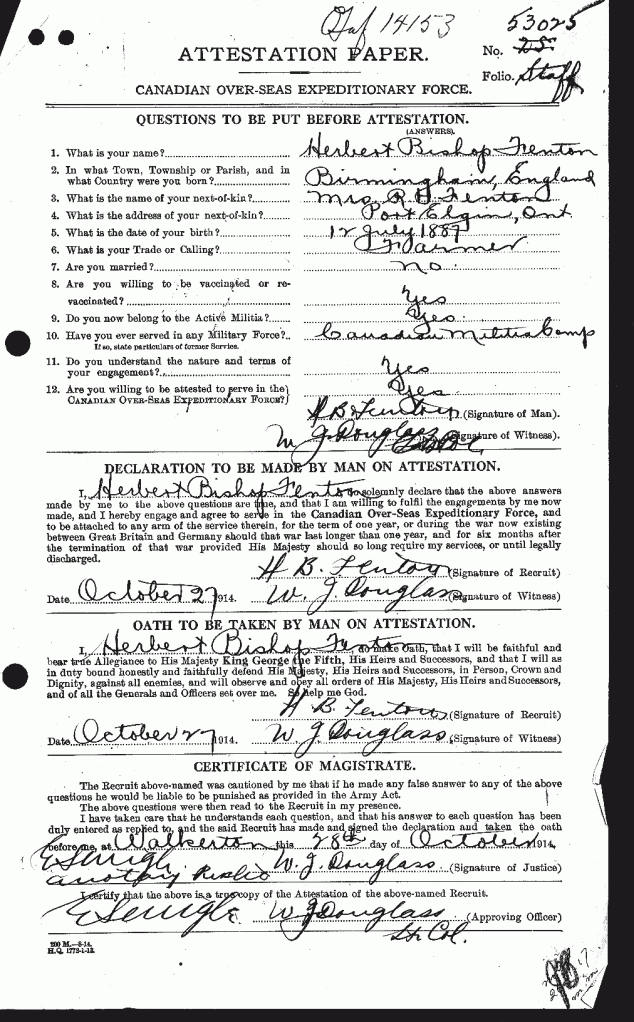 14153
53025
ATTESTATION PAPER.
No. 25
Folio. Staff
CANADIAN OVER-SEAS EXPEDITIONARY FORCE.
QUESTIONS TO BE PUT BEFORE ATTESTATION.
(ANSWERS).
1. What is your name? Herbert Bishop Fenton
2. In what Town, Township or Parish, and in
what Country were you born? Birmingham, England
3. What is the name of your next-of-kin? Mrs R. H. Fenton
4. What is the address of your next-of-kin? Port Elgin, Ont.
5. What is the date of your birth? 12 July 1887
6. What is your Trade or Calling? Farmer
7. Are you married? no.
8. Are you willing to be vaccinated or re-
vaccinated? Yes
9. Do you now belong to the Active Militia? Yes.
10. Have you ever served in any Military Force? Canadian Militia Camp
If so, state particulars of former Service.
11. Do you understand the nature and terms of
your engagement? Yes
12. Are you willing to be attested to serve in the
CANADIAN OVER-SEAS EXPEDITIONARY FORCE? Yes
H B Fenton (Signature of Man).
W J Douglass (Signature of Witness).
DECLARATION TO BE MADE BY MAN ON ATTESTATION.
I, Herbert Bishop Fenton solemnly declare that the above answers
made by me to the above questions are true, and that I am willing to fulfil the engagements by me now
made, and I hereby engage and agree to serve in the Canadian Over-Seas Expeditionary Force, and
to be attached to any arm of the service therein, for the term of one year, or during the war now existing
between Great Britain and Germany should that war last longer than one year, and for six months after
the termination of that war provided His Majesty should so long require my services, or until legally
discharged.
H B. Fenton (Signature of Recruit)
Date October 27 1914. W. J. Douglass (Signature of Witness)
OATH TO BE TAKEN BY MAN ON ATTESTATION.
I, Herbert Bishop Fenton, do make Oath, that I will be faithful and
bear true Allegiance to His Majesty King George the Fifth, His Heirs and Successors, and that I will as
in duty bound honestly and faithfully defend His Majesty, His Heirs and Successors, in Person, Crown and
Dignity, against all enemies, and will observe and obey all orders of His Majesty, His Heirs and Successors,
and of all the Generals and Officers set over me. So help me God.
H B. Fenton (Signature of Recruit)
Date October 27 1914. W J Douglass (Signature of Witness)
CERTIFICATE OF MAGISTRATE.
The Recruit above-named was cautioned by me that if he made any false answer to any of the above
questions he would be liable to be punished as provided in the Army Act.
The above questions were then read to the Recruit in my presence.
I have taken care that he understands each question, and that his answer to each question has been
duly entered as replied to, and the said Recruit has made and signed the declaration and taken the oath
before me, at Walkerton this 28th day of October 1914.
a notary Public W. J. Douglass (Signature of Justice)
I certify that the above is a true copy of the Attestation of the above-named Recruit.
W J Douglass (Approving Officer)
Lt. Col.
200 M.—8-14.
H.Q. 1772-1-13.